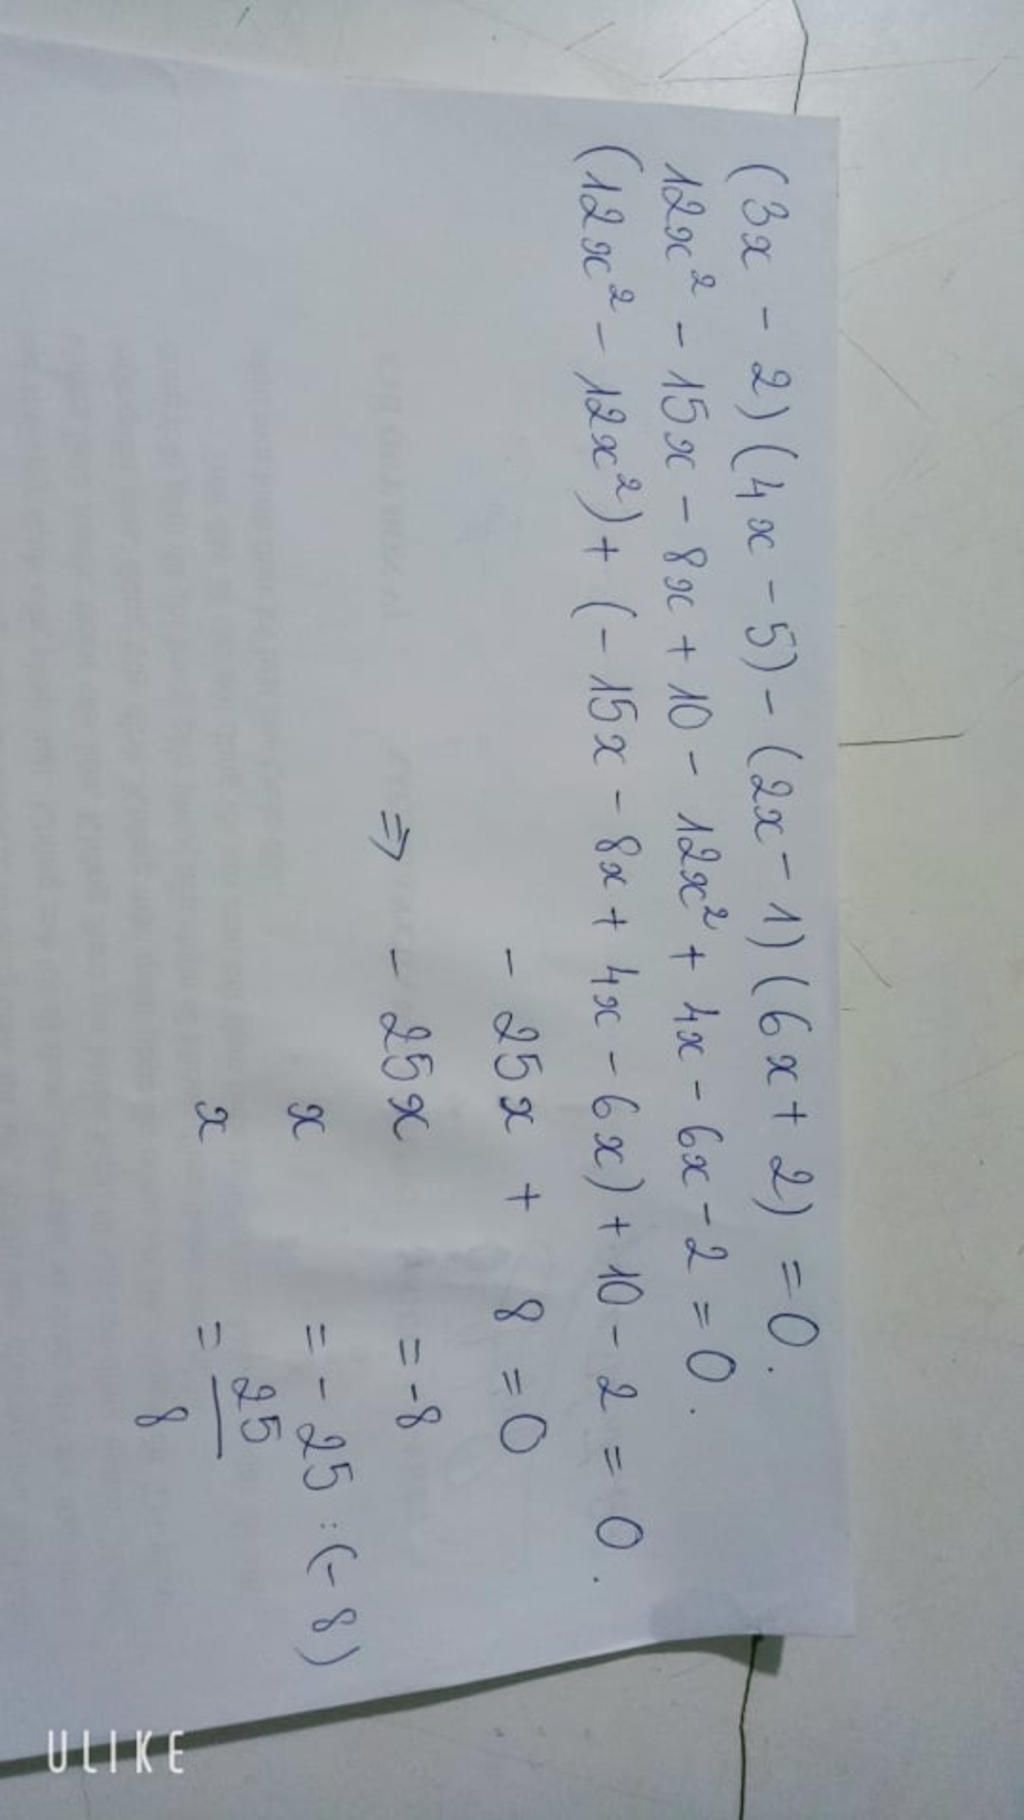 (3x - 2)(4x - 5) - (2x - 1)(6x + 2) = 0.
12x² - 15x - 8x + 10 - 12x² + 4x - 6x - 2 = 0.
(12x² - 12x²) + (- 15x - 8x + 4x - 6x) + 10 - 2 = 0.
- 25x + 8 = 0
⇒ - 25x = -8
x = - 25 : (- 8)
x = 25/8
ULIKE